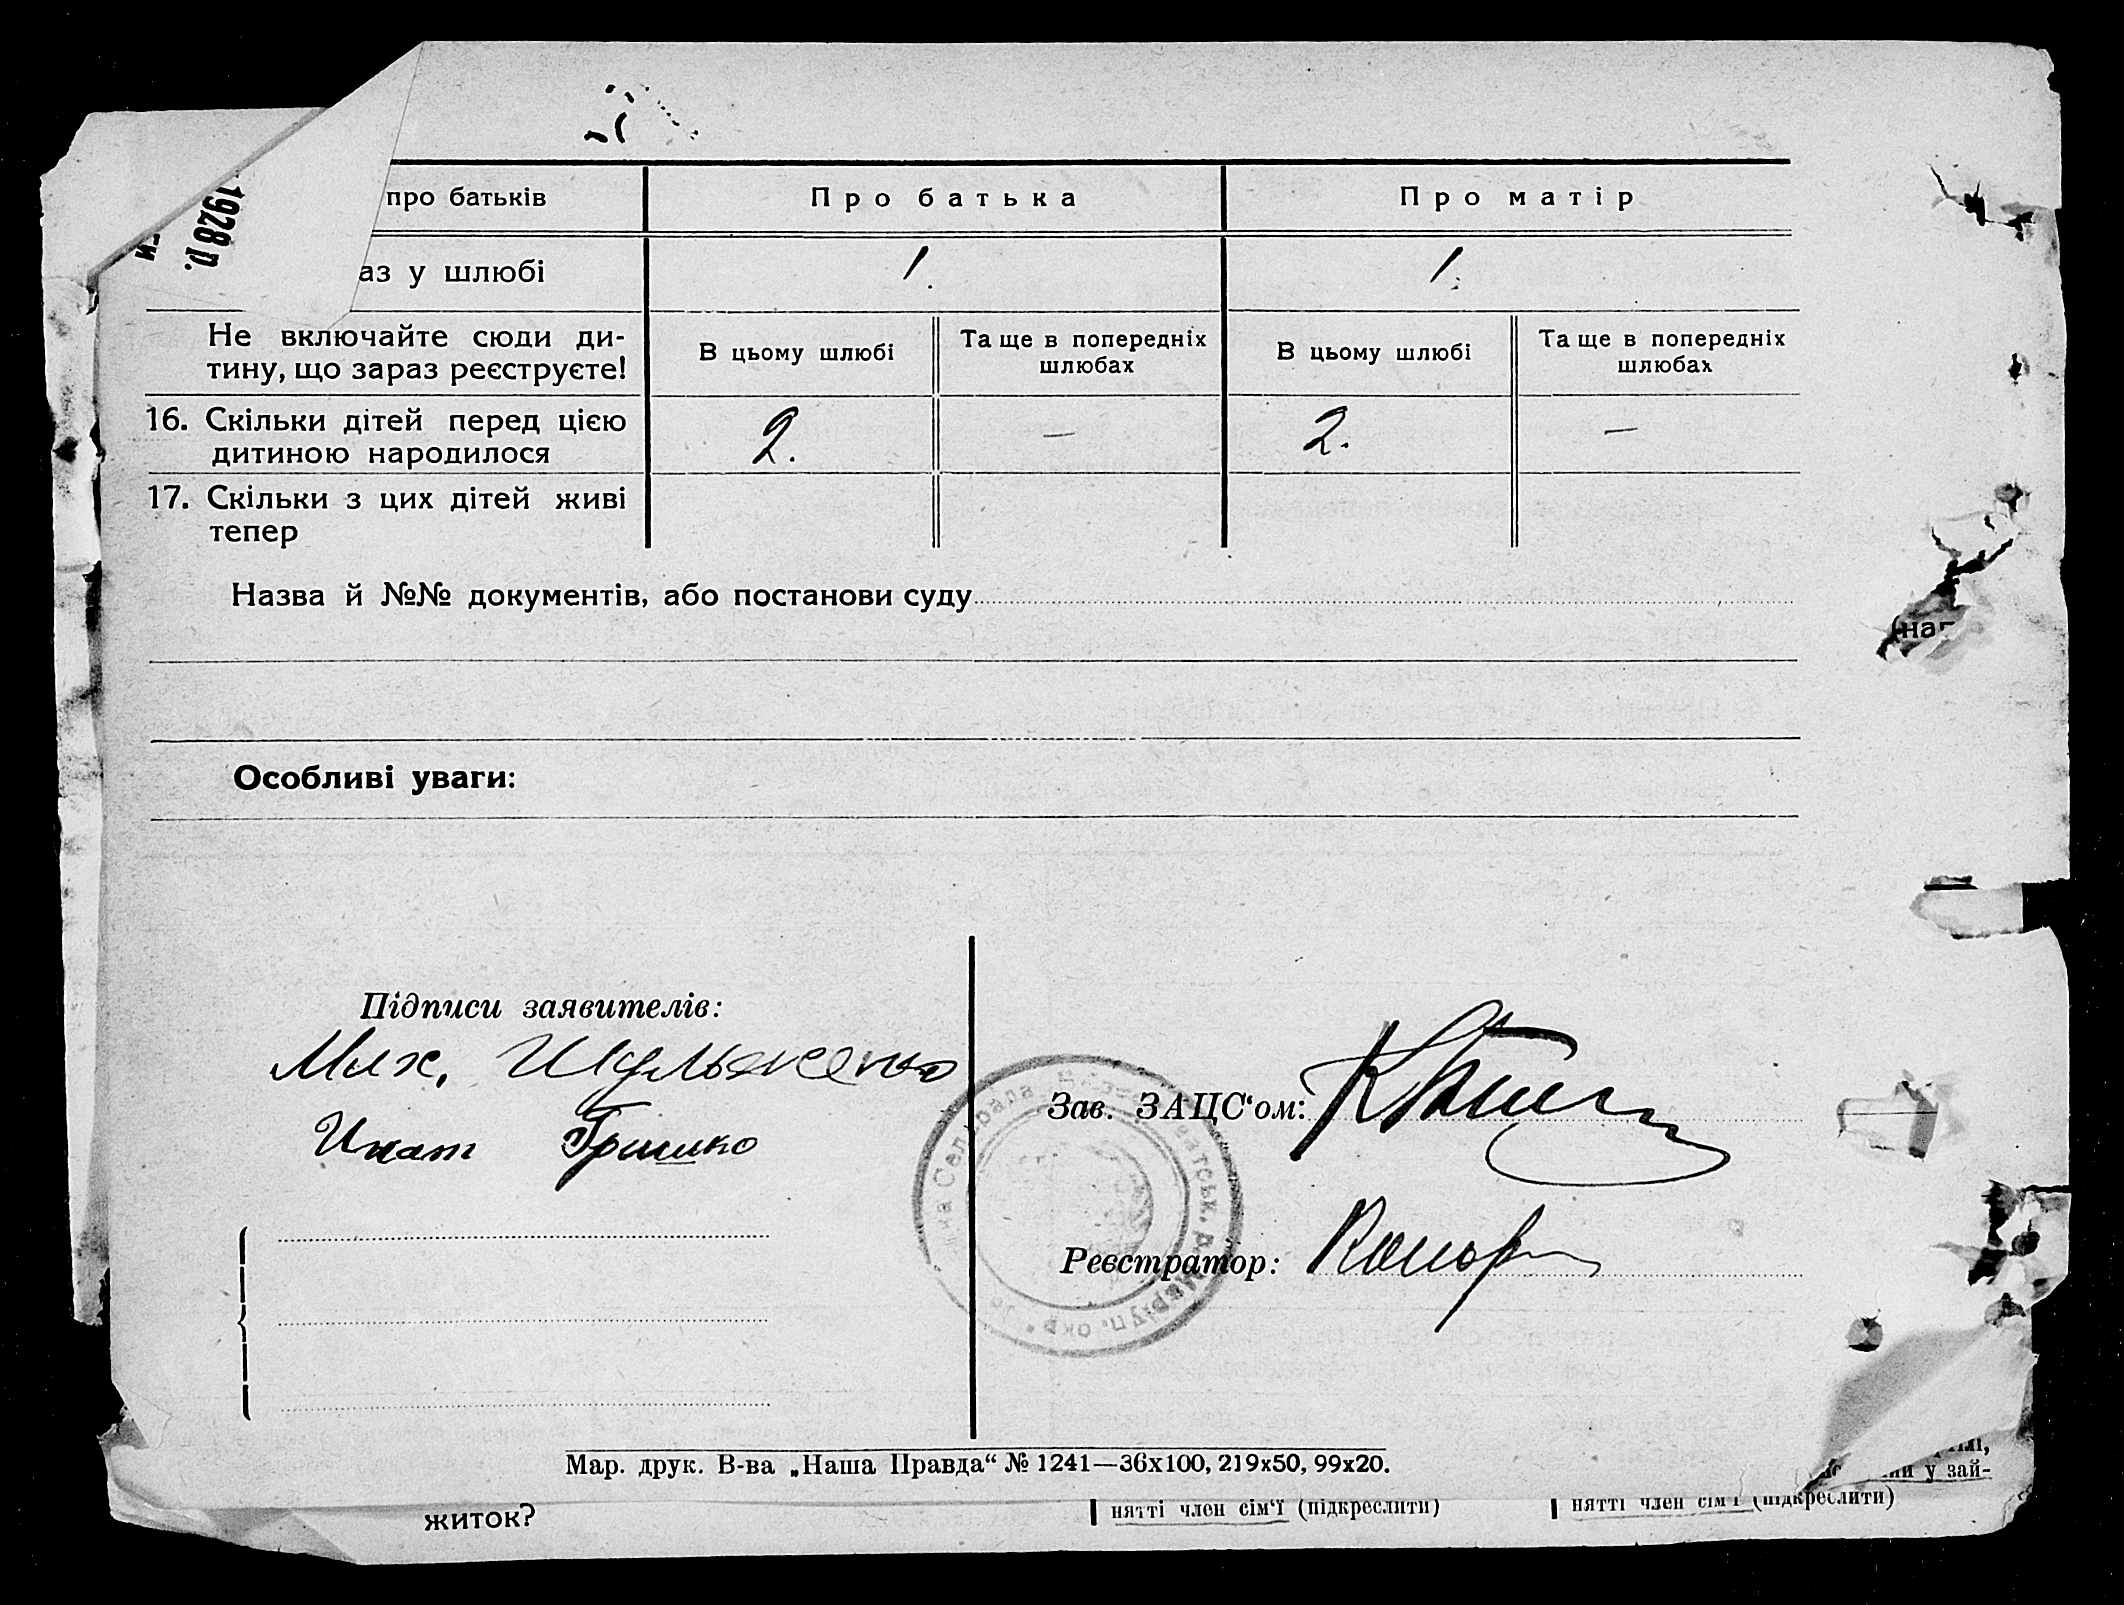 1928 р.
про батьків Про батька Про матір
аз у шлюбі 1. 1.
Не включайте сюди ди-
тину, що зараз реєструєте!
В цьому шлюбі Та ще в попередніх
шлюбах
В цьому шлюбі Та ще в попередніх
шлюбах
16. Скільки дітей перед цією
дитиною народилося
2. — 2. —
17. Скільки з цих дітей живі
тепер
Назва й №№ документів, або постанови суду
Особливі уваги:
Підписи заявителів:
Мих. Шульженко
Игнат Гришко
Зав. ЗАЦС'ом:
Реєстратор:
Сельрада
окр.
Мар. друк. В-ва „Наша Правда“ № 1241—36х100, 219х50, 99х20.
у зай-
житок? нятті член сім'ї (підкреслити) нятті член сім'ї (підкреслити)